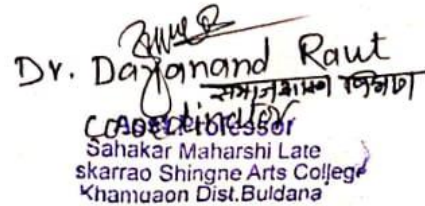 Dr. Dayanand Raut
समाजशास्त्र विभाग
coordinator
Professor
Sahakar Maharshi Late
skarrao Shingne Arts College
Khamgaon Dist.Buldana